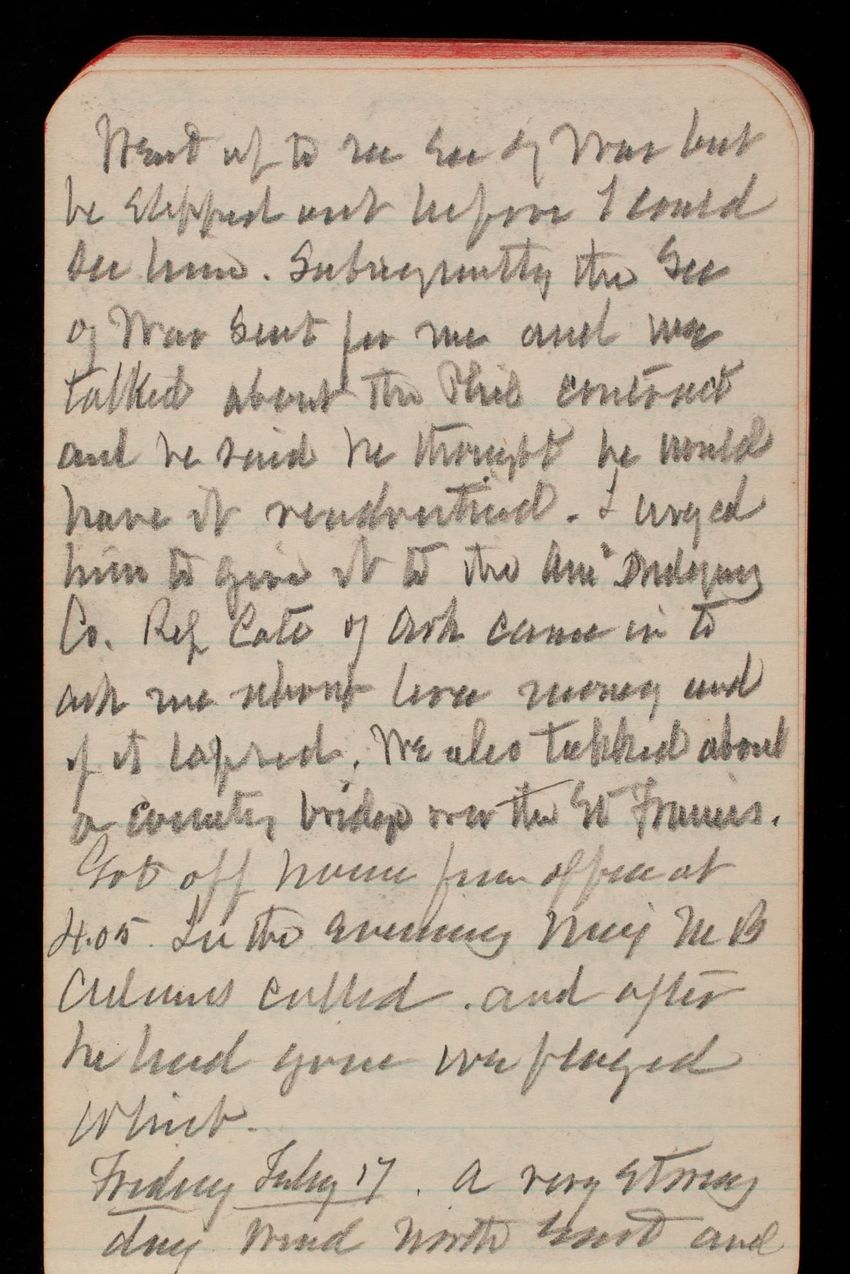 Went up to see Sec of War but
he stepped out before I could
see him. Subsequently the Sec
of War sent for me and we
talked about the Phil contract
and he said he thought he would
have it readvertised. I urged
him to give it to the Am Dredging
Co. Rep Cate of Ark came in to
ask me about levee money and
if it lapsed. We also talked about
a country bridge over the St Francis.
Got off home from office at
4.05. In the evening Maj M B
Adams called. and after
he had gone we played
Whist.
Friday Feby 17. A very stormy
day Wind North East and